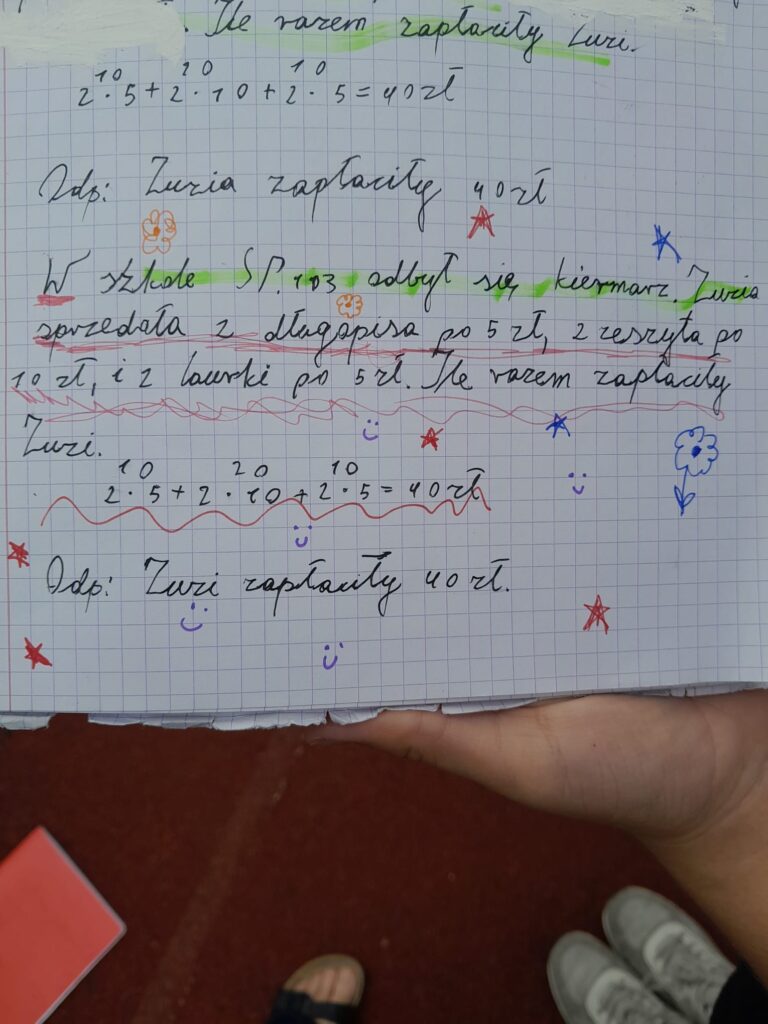 . Ile razem zapłaciły Zuzi.
10 20 10
2 · 5 + 2 · 10 + 2 · 5 = 40 zł
Odp: Zuzia zapłaciły 40 zł
W szkole SP. 103 odbył się kiermarz. Zuzia
sprzedała 2 długapisa po 5 zł, 2 zeszyta po
10 zł, i 2 laurki po 5 zł. Ile razem zapłaciły
Zuzi.
10 20 10
2 · 5 + 2 · 10 + 2 · 5 = 40 zł
Odp: Zuzi zapłaciły 40 zł.